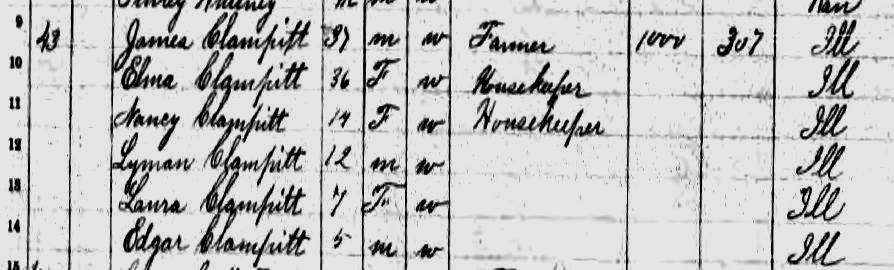 9 43 James Clampitt 37 m w Farmer 1000 307 Ill
10 Elma Clampitt 36 F w Housekeeper Ill
11 Nancy Clampitt 14 F w Housekeeper Ill
12 Lyman Clampitt 12 m w Ill
13 Laura Clampitt 7 F w Ill
14 Edgar Clampitt 5 m w Ill
15